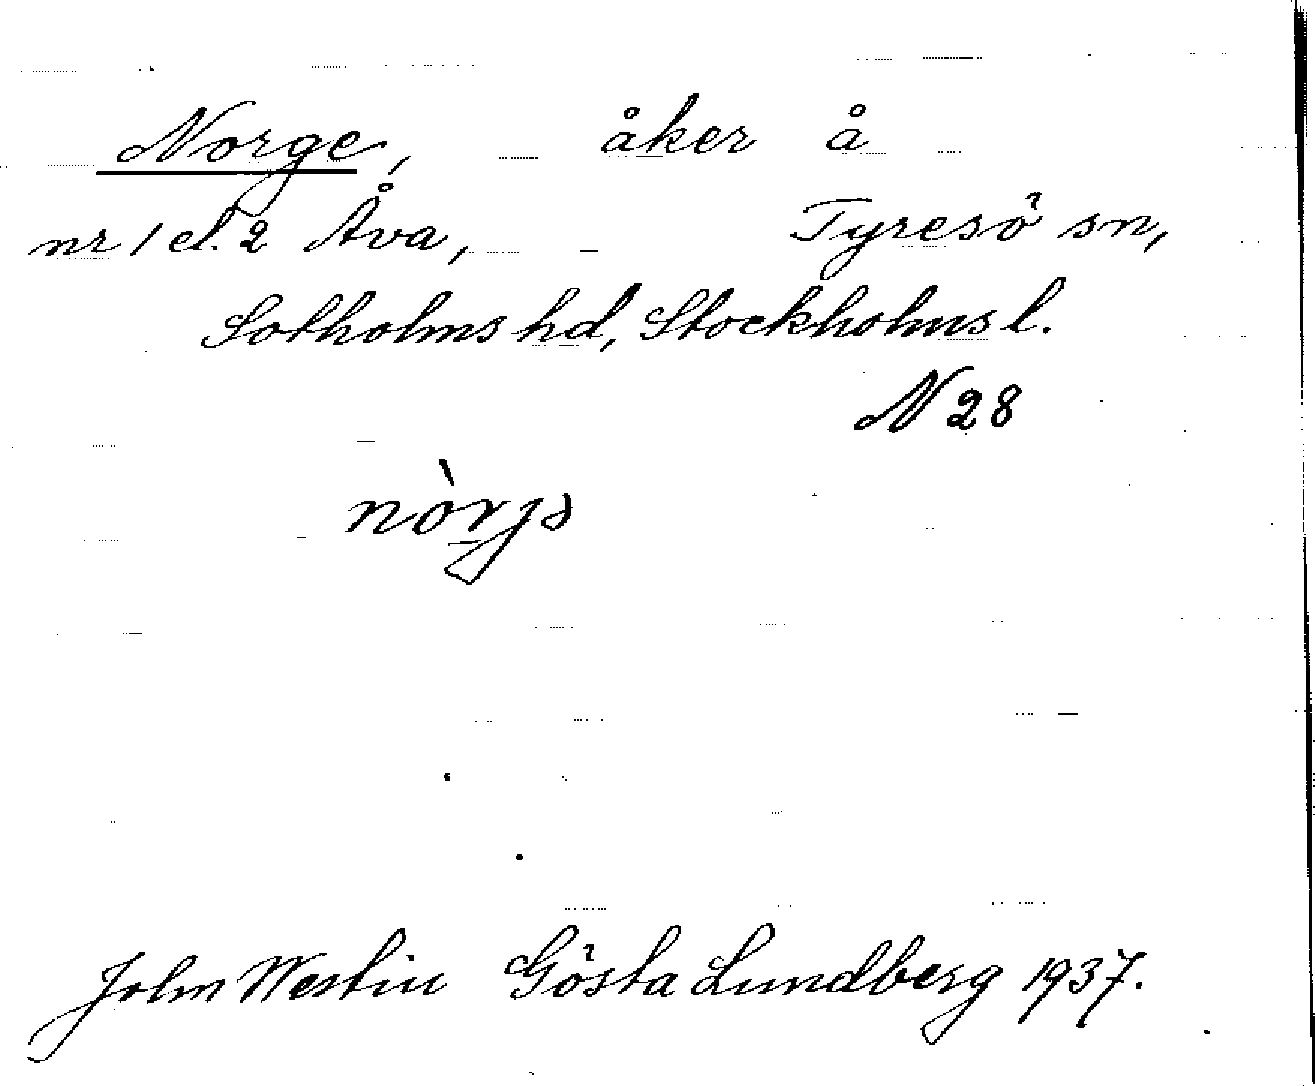 Norge, åker å
nr 1 el. 2 Åva, Tyresö sn,
Sotholms hd, Stockholms l.
N 28
nòrjs
John Westin Gösta Lundberg 1937.